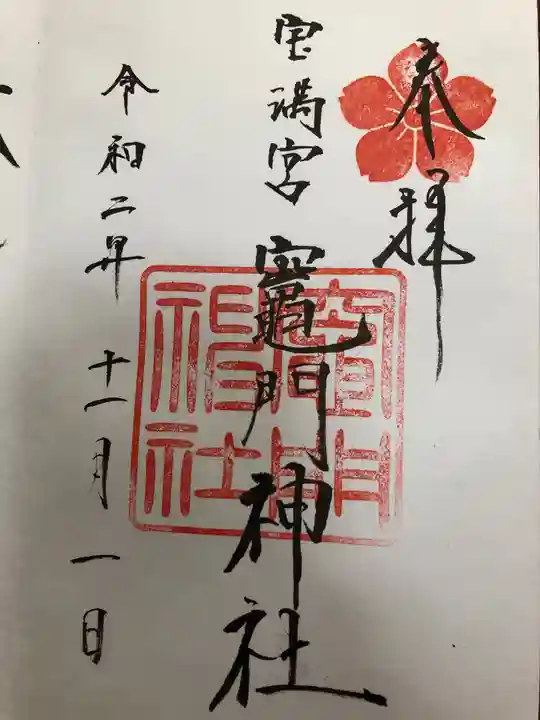 奉拝
宝満宮 竈門神社
竈門神社
令和二年 十一月 一日